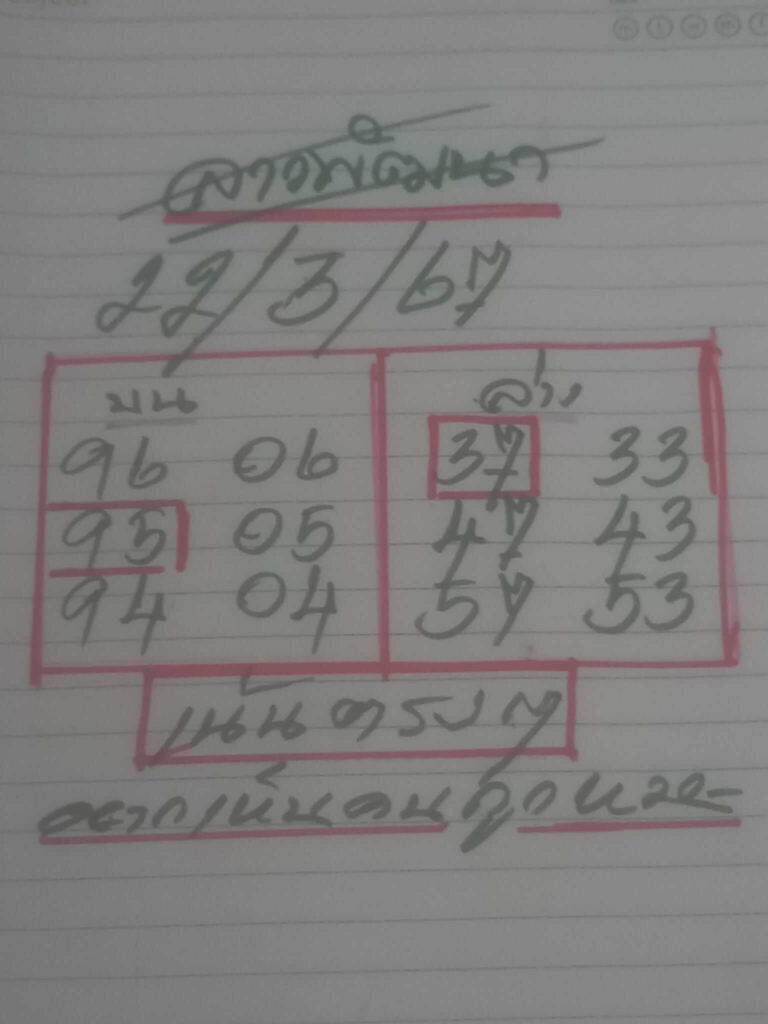 ลาวพัฒนา
22/3/67
บน ล่าง
96 06 37 33
95 05 47 43
94 04 57 53
เน้นตรงๆ
อยากเห็นคนถูกหวย